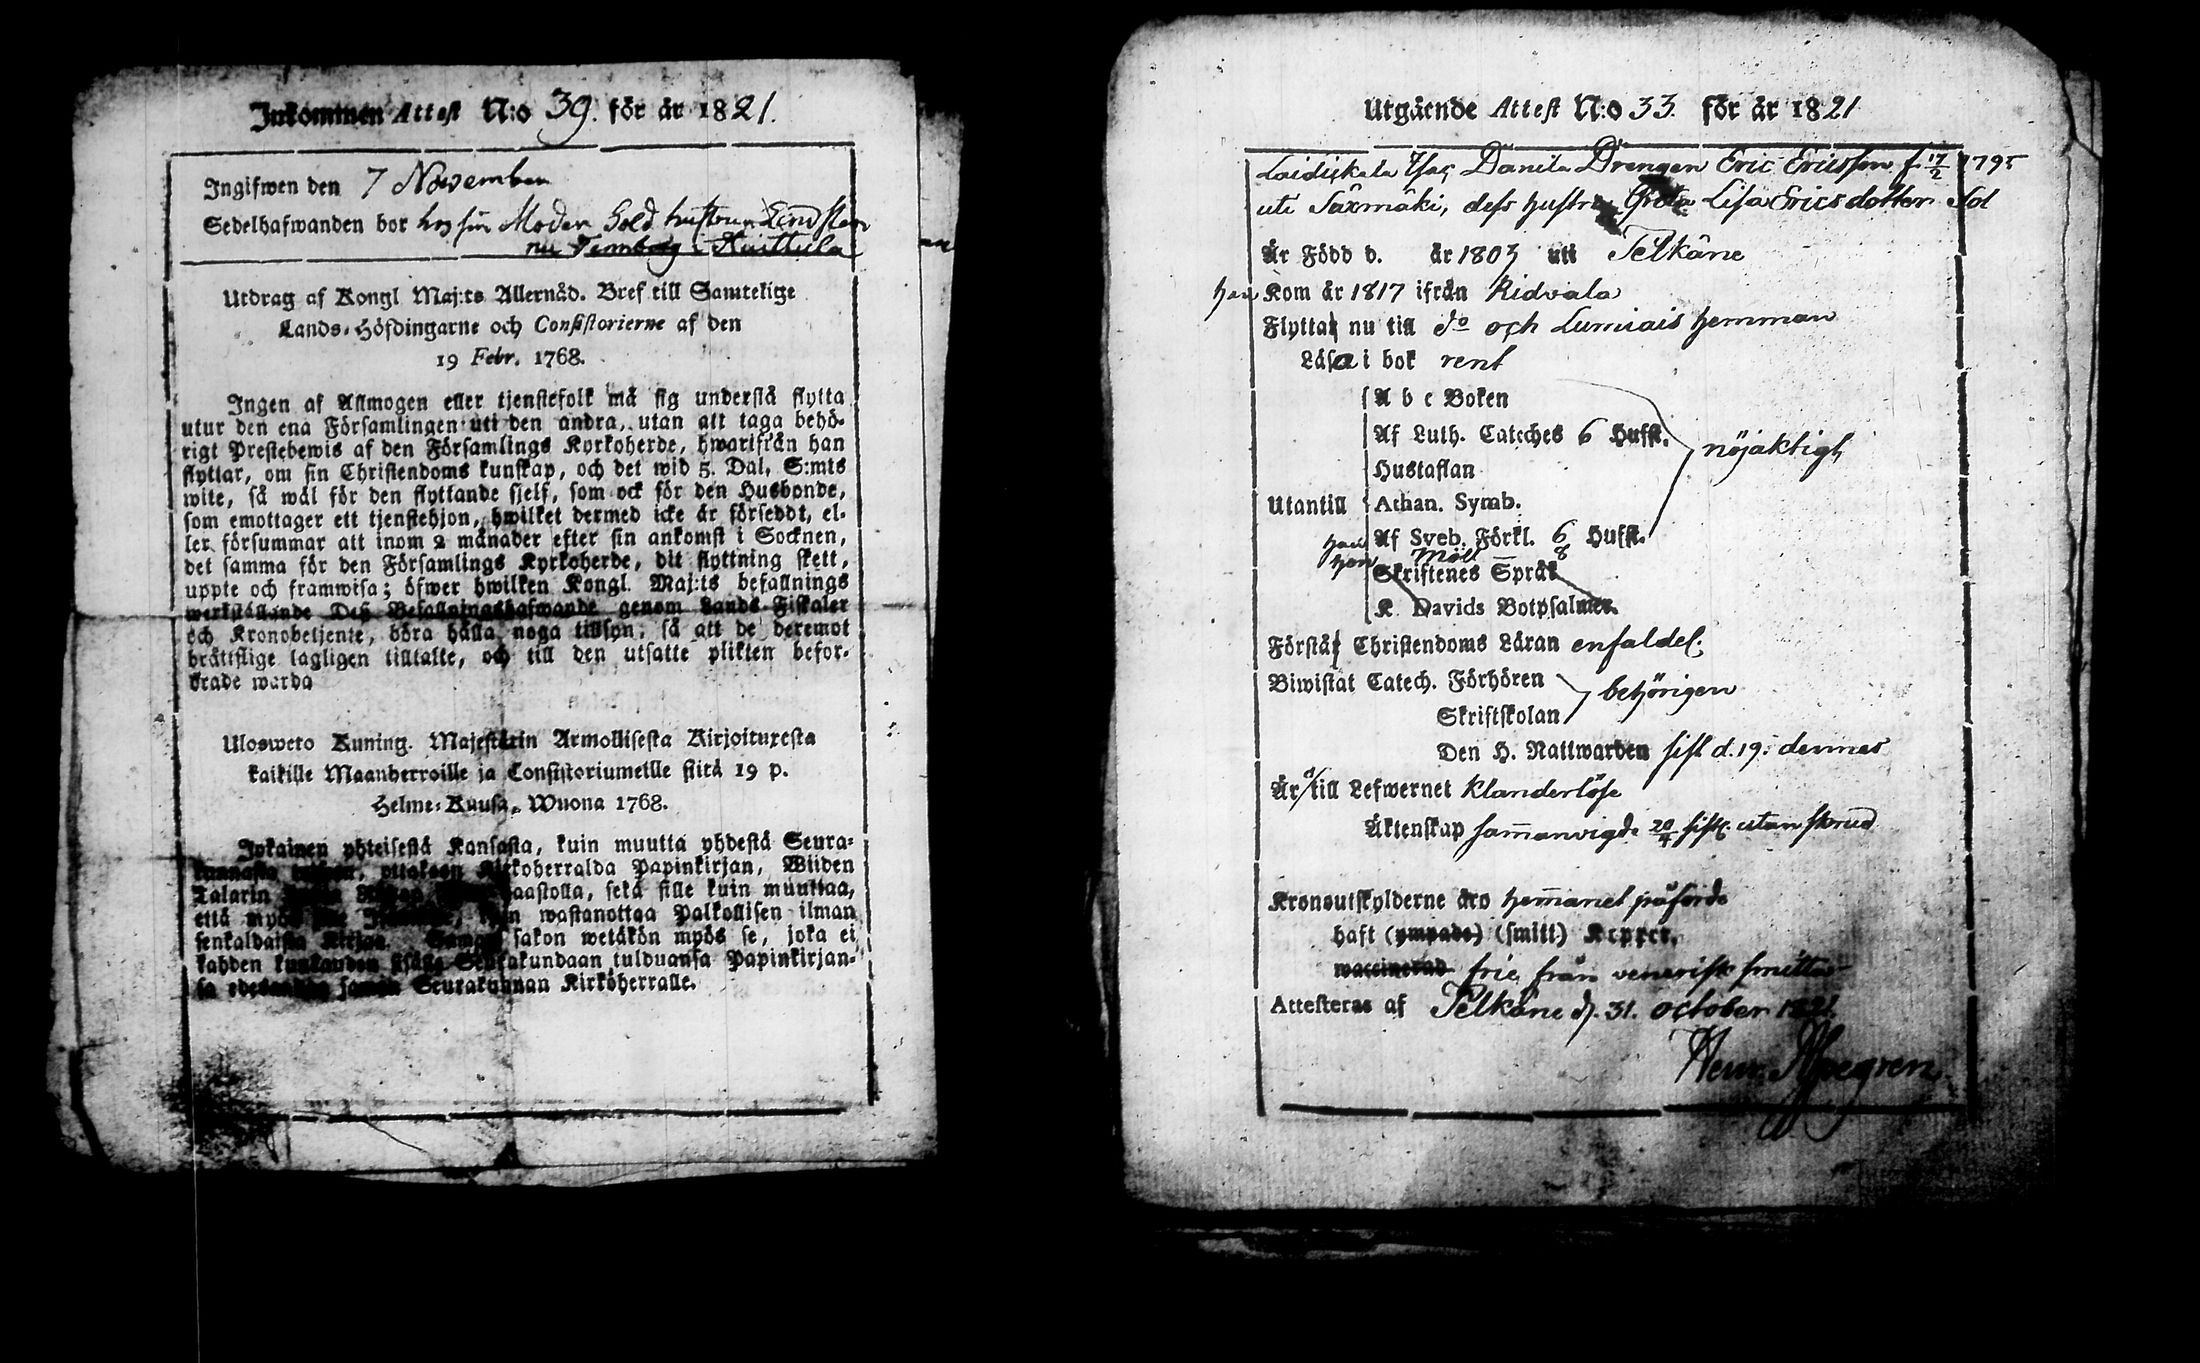 Inkommen Attest N:o 39. för år 1821.
Ingifwen den 7 November
Sedelhafwanden bor hos sin Moder Sold. hustrun Lindsten
nu i Kuittula
Utdrag af Kongl Maj:ts Allernåd. Bref till Samtelige
Lands-Höfdingarne och Consistorierne af den
19 Febr. 1768.
Ingen af Allmogen eller tjenstefolk må sig understå flytta
utur den ena Församlingen uti den andra, utan att taga behö-
rigt Prestebewis af den Församlings Kyrkoherde, hwarifrån han
flyttar, om sin Christendoms kunskap, och det wid 5. Dal. S:mts
wite, så wäl för den flyttande sjelf, som ock för den Husbonde,
som emottager ett tjenstehjon, hwilket dermed icke är försedt, el-
ler försummar att inom 2 månader efter sin ankomst i Socknen,
det samma för den Församlings Kyrkoherde, dit flyttning skett,
uppte och framwisa; öfwer hwilken Kongl. Maj:ts befallnings
werkställande Deß Befallningshafwande genom Lands-Fiskaler
och Kronobetjente, böra hålla noga tillsyn, så att de deremot
bråttslige lagligen tilltalte, och till den utsatte plikten befor-
drade warda
Ulosweto Kuning. Majestetin Armollisesta Kirjoituxesta
kaikille Maanherroille ja Consistoriumeille siitä 19 p.
Helme-Kuusa, Wuona 1768.
Jokainen yhteisestä Kansasta, kuin muutta yhdestä Seura-
kunnasta toiseen, ottakoon Kirkoherralda Papinkirjan, Wiiden
Talarin saastolla, sekä sille kuin muuttaa,
että myös wastanottaa Palkollisen ilman
senkaldaista Kirjaa. Saman sakon wetäkön myös se, joka ei
kahden kuukauden sisällä Seurakundaan tulduansa Papinkirjan-
sa edesanna saman Seurakunnan Kirkoherralle.
Utgående Attest N:o 33. för år 1821
Laidikkala Danila Drengen Eric Ericsson f. 17/2 1795
uti Säxmäki, dess hustru Greta Lisa Ericsdotter Sol
Är Född d. år 1803 uti Pelkäne
han Kom år 1817 ifrån Ridvala
Flytta nu till do och Lumiais hemman
Läsa i bok rent
A b c Boken
Af Luth. Cateches 6 Hufst.
Hustaflan
nöjaktigt
Utantill Athan. Symb.
han Af Sveb. Förkl. 6 Hufst.
hon Möll 8
Skriftenes Språk
K. Davids Botpsalmer.
Förstå Christendoms Läran enfaldel.
Biwistat Catech. Förhören
Skriftskolan
behörigen
Den H. Nattwarden sist d. 19. dennes
Är till Lefwernet klanderlöse
Äktenskap sammanvigde 20/4 sistl. utan skrud
Kronoutskylderne äro hemmanet påförde
haft (ympade) (smitt) Koppor.
waccinerad frie från venerisk smitta
Attesteras af Pelkäne d. 31. october 1821
Henr. Alpegren